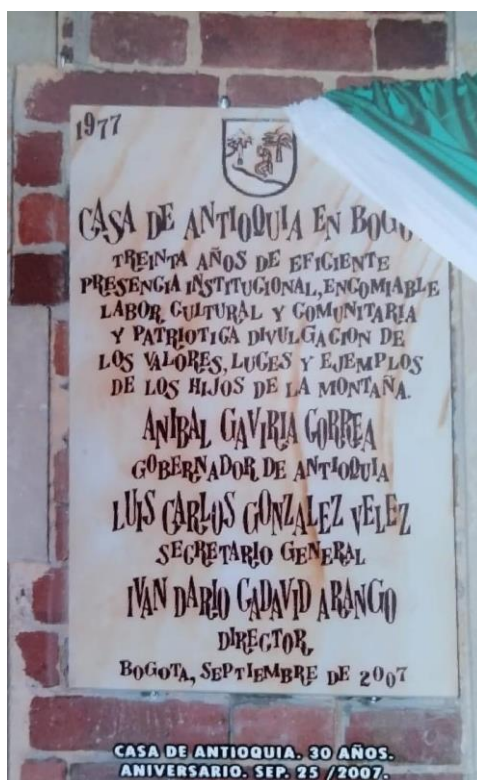 1977
CASA DE ANTIOQUIA EN
TREINTA AÑOS DE EFICIENTE
PRESENCIA INSTITUCIONAL, ENCOMIABLE
LABOR CULTURAL Y COMUNITARIA
Y PATRIOTICA DIVULGACION DE
LOS VALORES, LUCES Y EJEMPLOS
DE LOS HIJOS DE LA MONTAÑA.
ANIBAL GAVIRIA CORREA
GOBERNADOR DE ANTIOQUIA
LUIS CARLOS GONZALEZ VELEZ
SECRETARIO GENERAL
IVAN DARIO CADAVID ARANGO
DIRECTOR
BOGOTA, SEPTIEMBRE DE 2007
CASA DE ANTIOQUIA. 30 AÑOS.
ANIVERSARIO. SEP. 25 /2007.